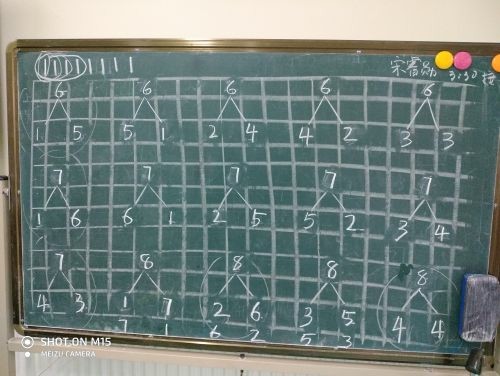 | | | | | | | | 宋睿勋 3:30 接
6 6 6 6 6
1 5 5 1 2 4 4 2 3 3
7 7 7 7 7
1 6 6 1 2 5 5 2 3 4
7 8 8 8 8
4 3 1 7 2 6 3 5 4 4
7 1 6 2 5 3
SHOT ON M15
MEIZU CAMERA